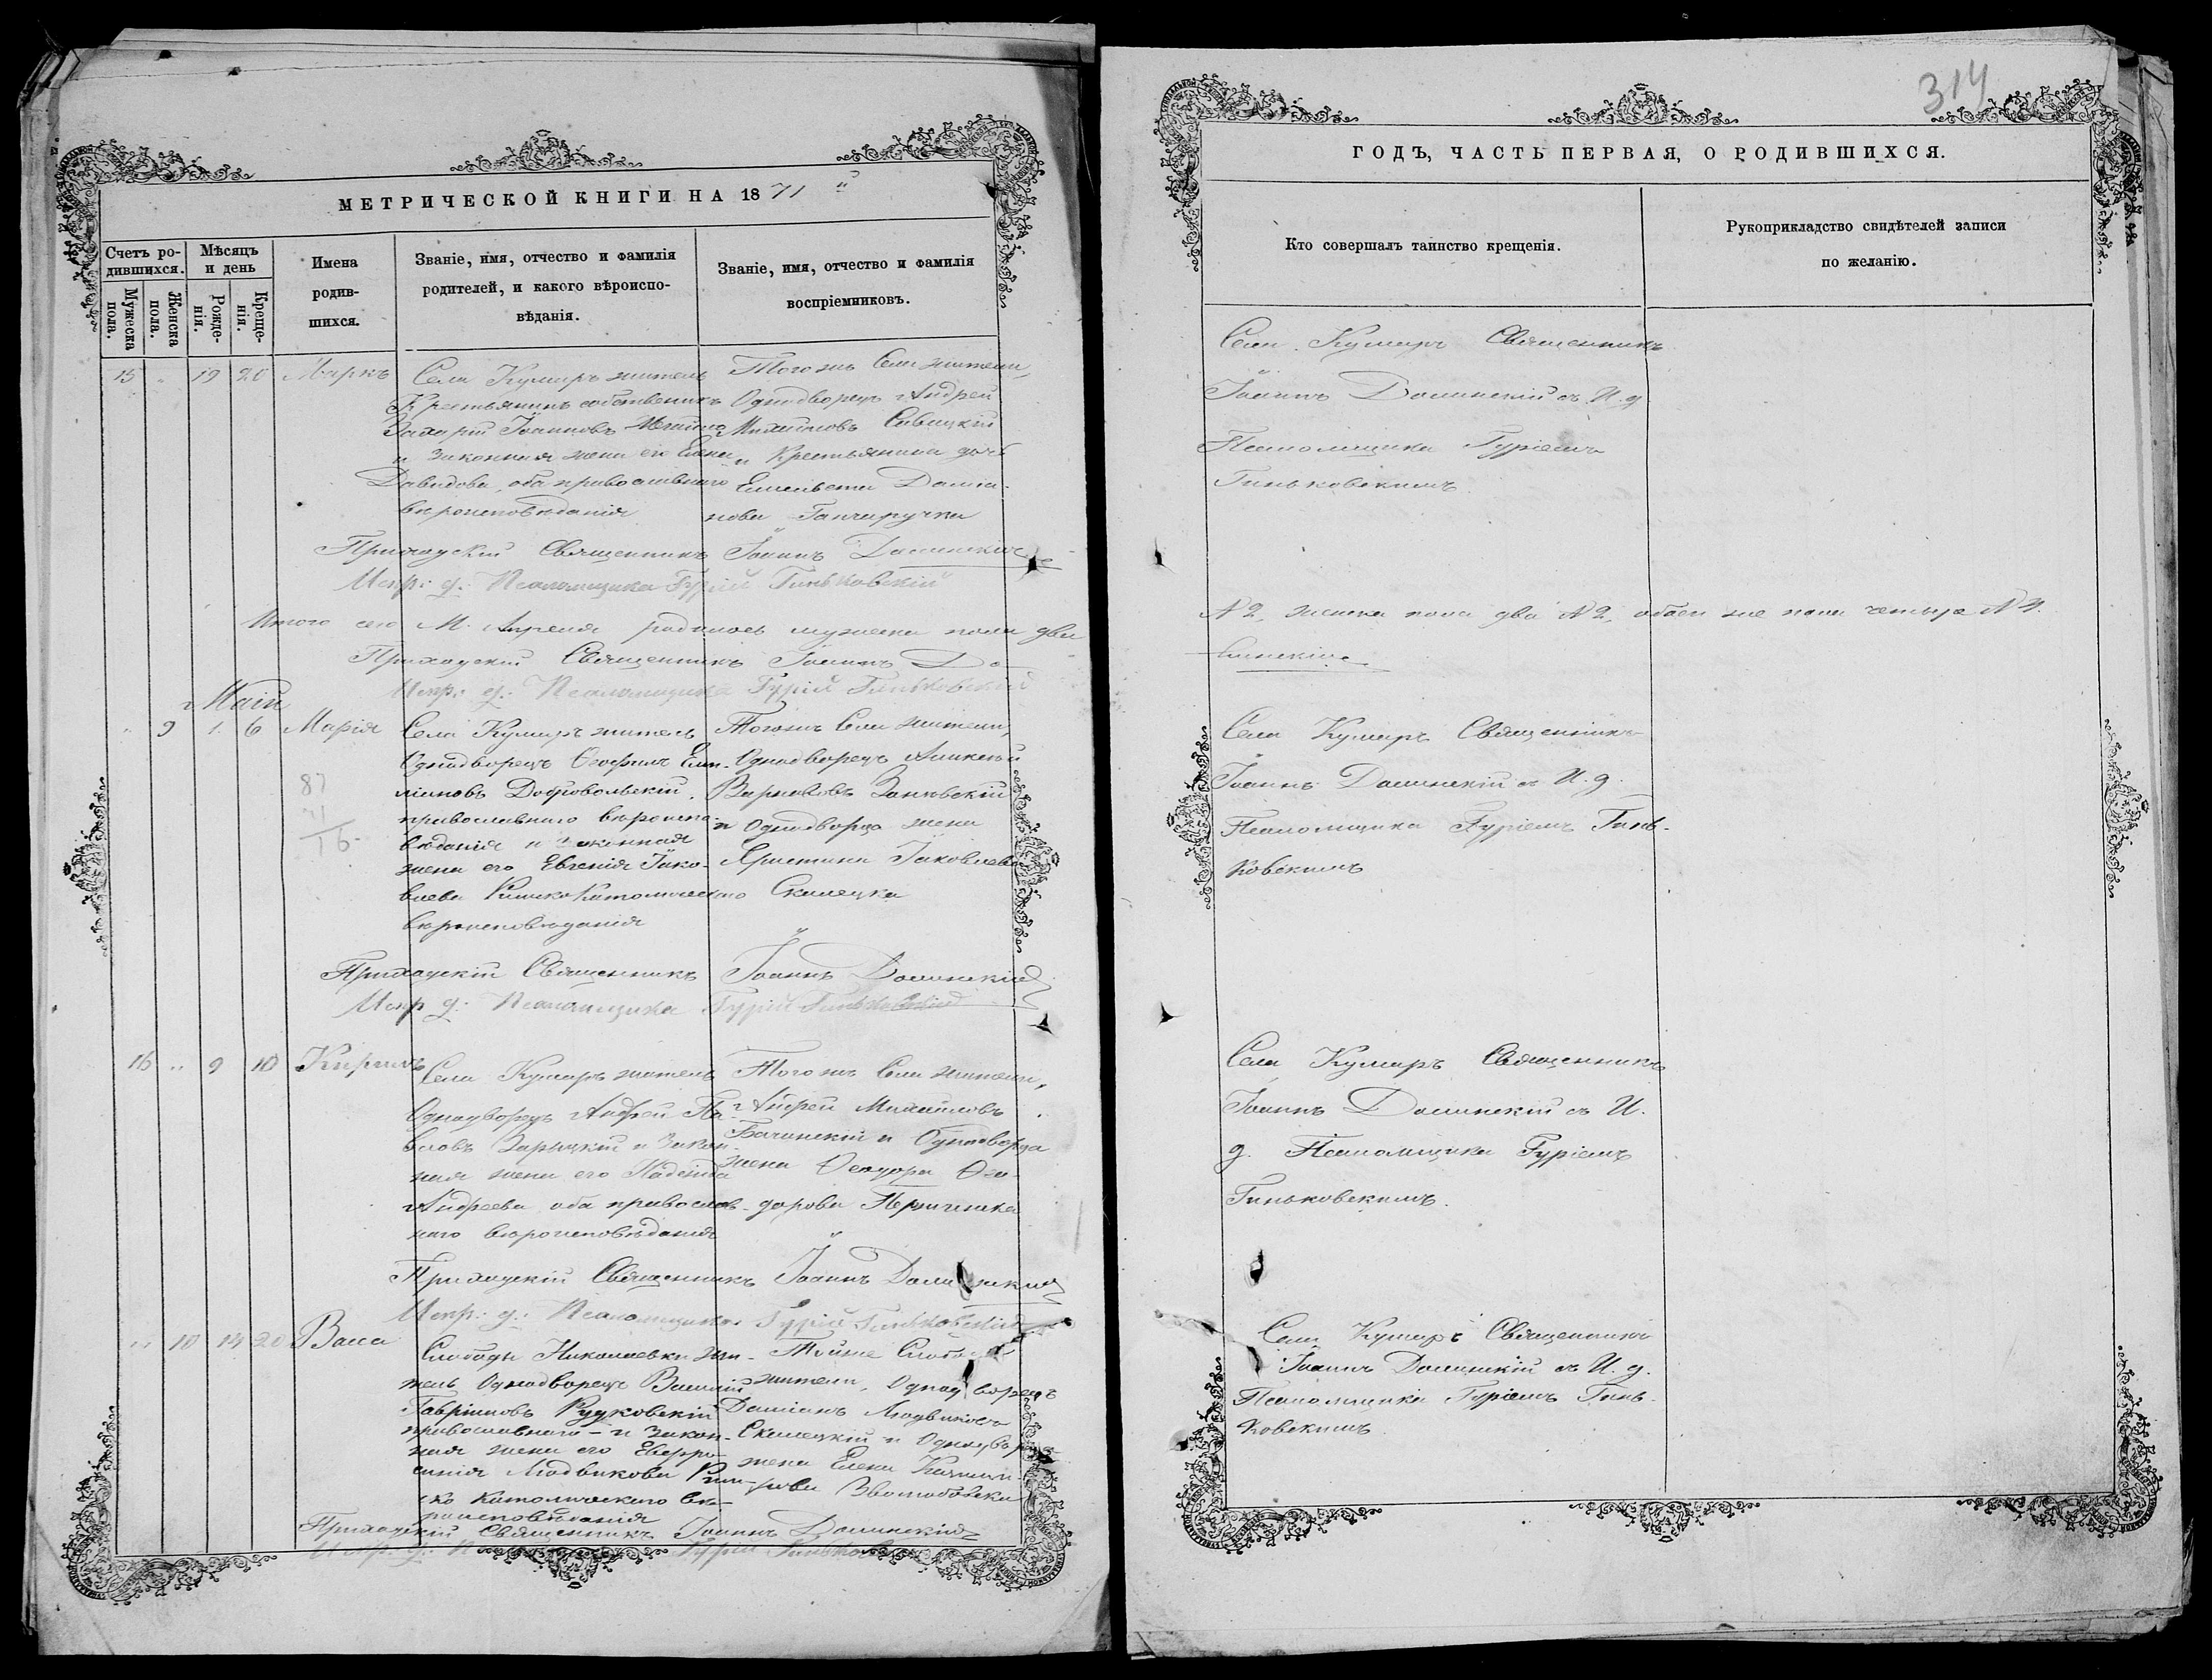 МЕТРИЧЕСКОЙ КНИГИ НА 1871 й
Счетъ родившихся.
Мужеска пола.
Женска пола.
Мѣсяцъ и день
Рожденія.
Крещенія.
Имена
родив-
шихся.
Званіе, имя, отчество и фамилія
родителей, и какого вѣроиспо-
вѣданія.
Званіе, имя, отчество и фамилія
воспріемниковъ.
15 " 19 20 Маркъ
Села Кумиръ житель
Крестьянинъ собственникъ
Захарій Іоанновъ
и законная жена его Елена
Давидова, оба православнаго
вѣроисповѣданія
Того жъ Села жители,
Однодворецъ Андрей
Михайловъ Савицкій
и Крестьянина дочь
Елисавета Доми-
нова
Приходскій Священникъ Іоаннъ Долинскій
Испр: д: Псаломщика Гурій Гиньковскій
Итого сего М. Апреля родилось мужеска пола два
Приходскій Священникъ Іоаннъ До-
Испр: д: Псаломщика Гурій Гиньковскій
Май
" 9 1 6 Марія
87
71
16
Села Кумиръ житель
Однодворецъ Ѳеофилъ Еми-
ліановъ Добровольскій,
православнаго вѣроиспо-
вѣданія и законная
жена его Евгенія Іако-
влева Римско Католическаго
вѣроисповѣданія
Того жъ Села жители,
Однодворецъ Алексѣй
Варнавовъ
и Однодворца жена
Христина Іаковлева
Скилецка
Приходскій Священникъ Іоаннъ Долинскій
Испр д: Псаломщика Гурій Гиньковскій
16 " 9 10 Кирилъ
Села Кумиръ житель
Однодворецъ Андрей Па-
вловъ Зарыцкій и закон-
ная жена его Надежда
Андреева, оба православ-
наго вѣроисповѣданія
Того жъ Села жители,
Андрей Михайловъ
Бачинскій и Однодворца
жена Ѳеодора Ѳео-
дорова
Приходскій Священникъ Іоаннъ Долинскій
Испр: д: Псаломщика Гурій Гиньковскій
" 10 14 20 Васса
Слободы Николаевки жи-
тель Однодворецъ Василій
Гавріиловъ Рудковскій
православнаго - и закон-
ная жена его Евфро-
синія Людвикова Рим-
ско католическаго вѣ-
роисповѣданія
Тойже Слободы
жители, Однодворецъ
Даміанъ Людвиковъ
Скилецкій и Однодворца
жена Елена Казими-
рова
Приходскій Священникъ Іоаннъ Долинскій
314
ГОДЪ, ЧАСТЬ ПЕРВАЯ, О РОДИВШИХСЯ.
Кто совершалъ таинство крещенія.
Рукоприкладство свидѣтелей записи
по желанію.
Села Кумиръ Священникъ
Іоаннъ Долинскій съ И. д
Псаломщика Гуріемъ
Гиньковскимъ.
№ 2, женска пола два № 2, обоего же пола четыре № 4.
линскій
Села Кумиръ Священникъ
Іоаннъ Долинскій съ И. д.
Псаломщика Гуріемъ Гинь-
ковскимъ
Села Кумиръ Священникъ
Іоаннъ Долинскій съ И.
д. Псаломщика Гуріемъ
Гиньковскимъ.
Села Кумиръ Священникъ
Іоаннъ Долинскій съ И. д.
Псаломщика Гуріемъ Гинь-
ковскимъ.